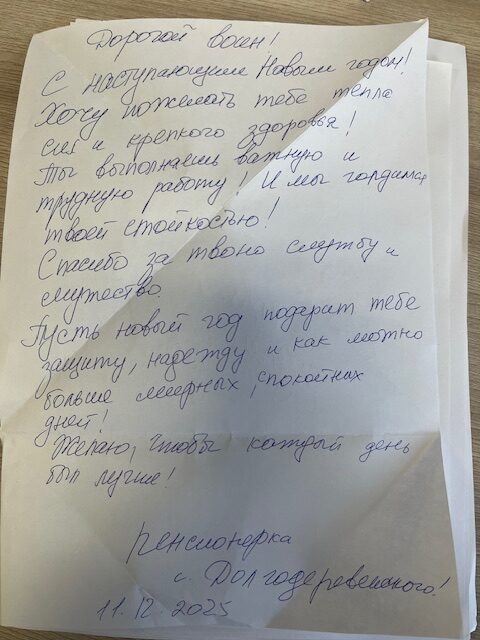 Дорогой воин!
С наступающим Новым годом!
Хочу пожелать тебе тепла
сил и крепкого здоровья!
Ты выполняешь важную и
трудную работу! И мы гордимся
твоей стойкостью!
Спасибо за твою службу и
мужество.
Пусть новый год подарит тебе
защиту, надежду и как можно
больше мирных, спокойных
дней!
Желаю, чтобы каждый день
был лучше!
пенсионерка
с. Долгодеревенского!
11.12.2025